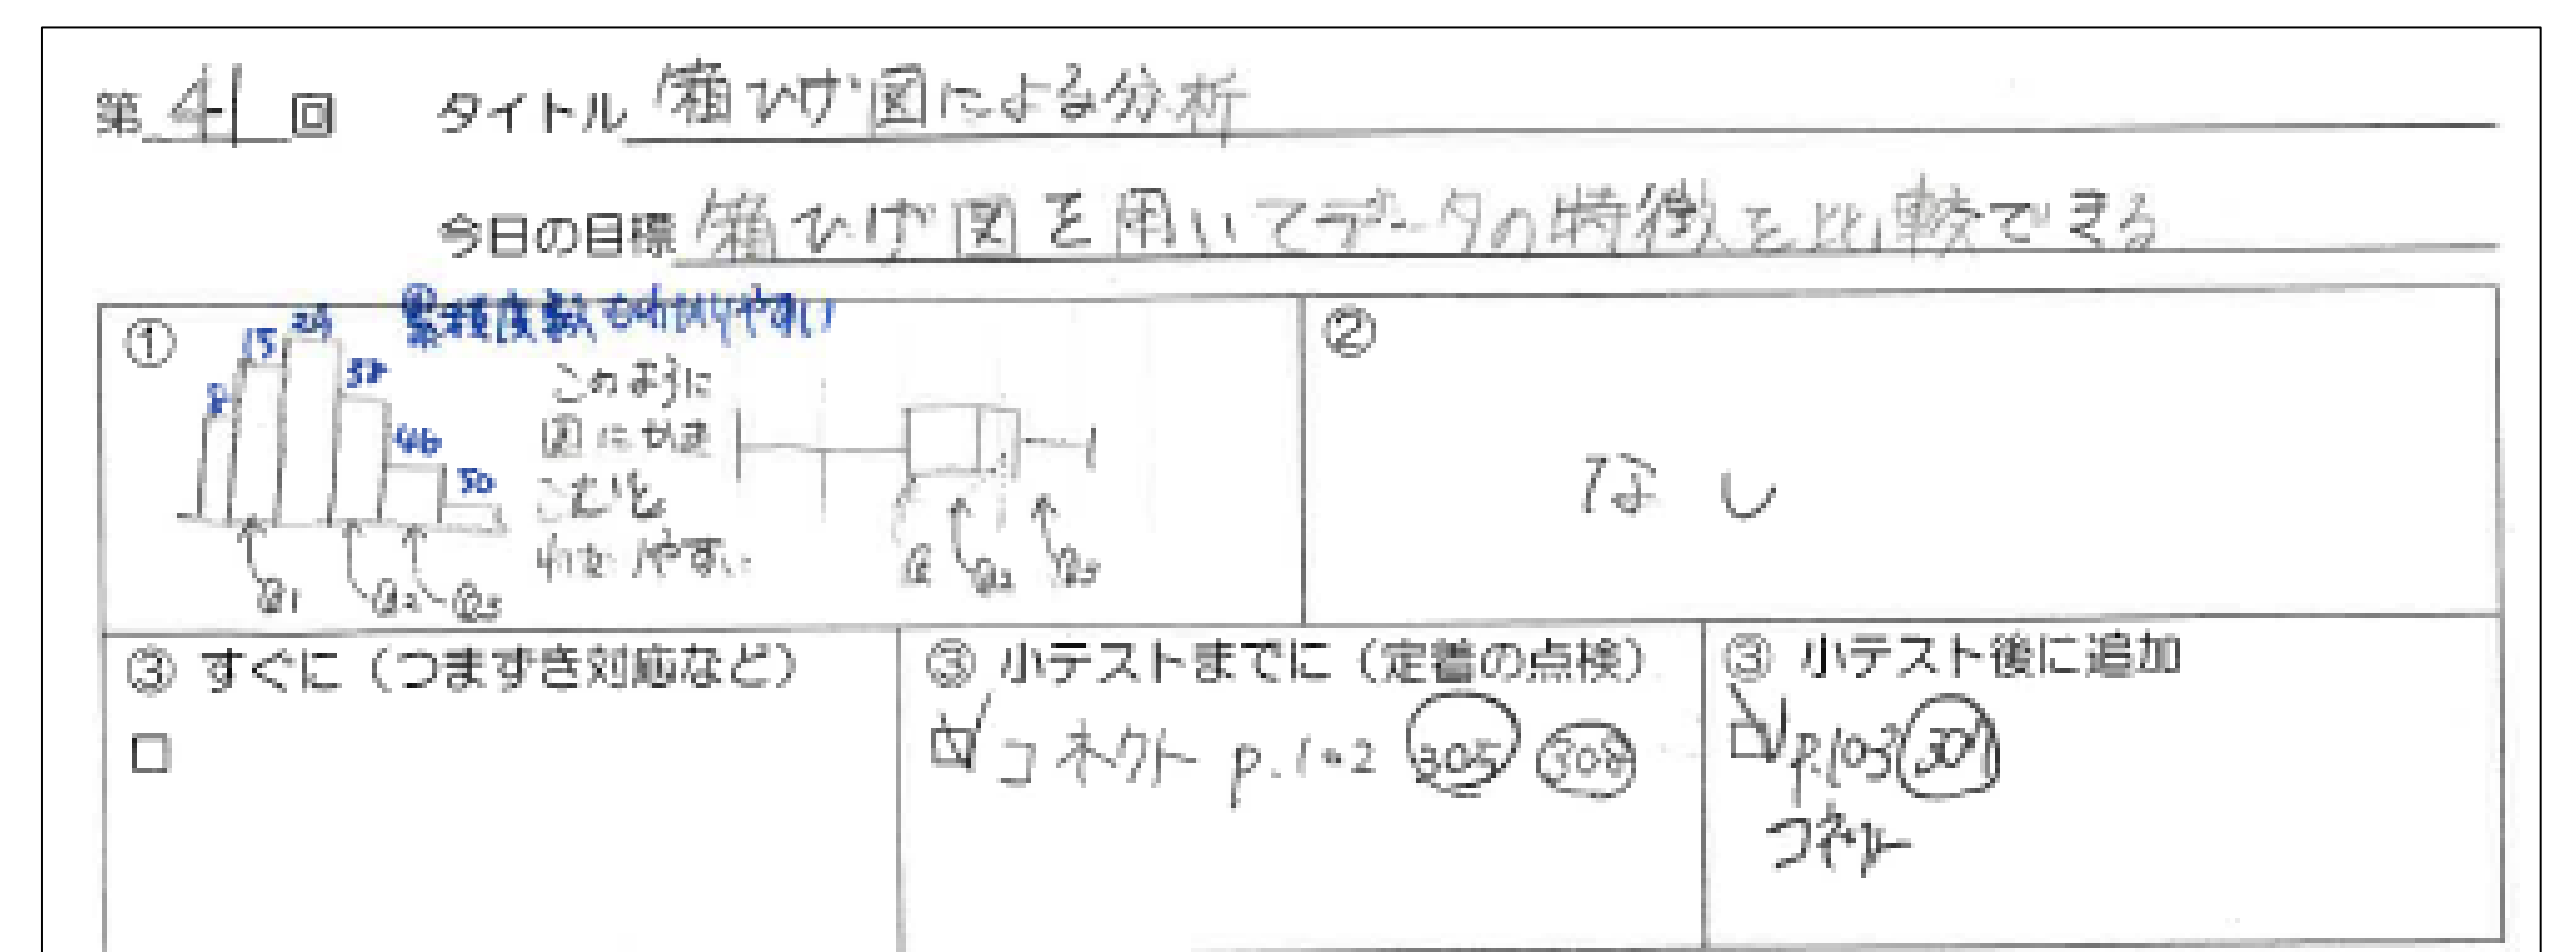 第 41 回 タイトル 箱ひげ図による分析
今日の目標 箱ひげ図を用いてデータの特徴を比較できる
①
累積度数もわかりやすい
15
38
46
50
このように
図にかき
わかりやすい
Q1 Q2 Q3
Q Q2 Q3
②
なし
③ すぐに（つまずき対応など）
□
③ 小テストまでに（定着の点検）
☑ コネクト p.102 305 308
③ 小テスト後に追加
☑ p.103
コネクト